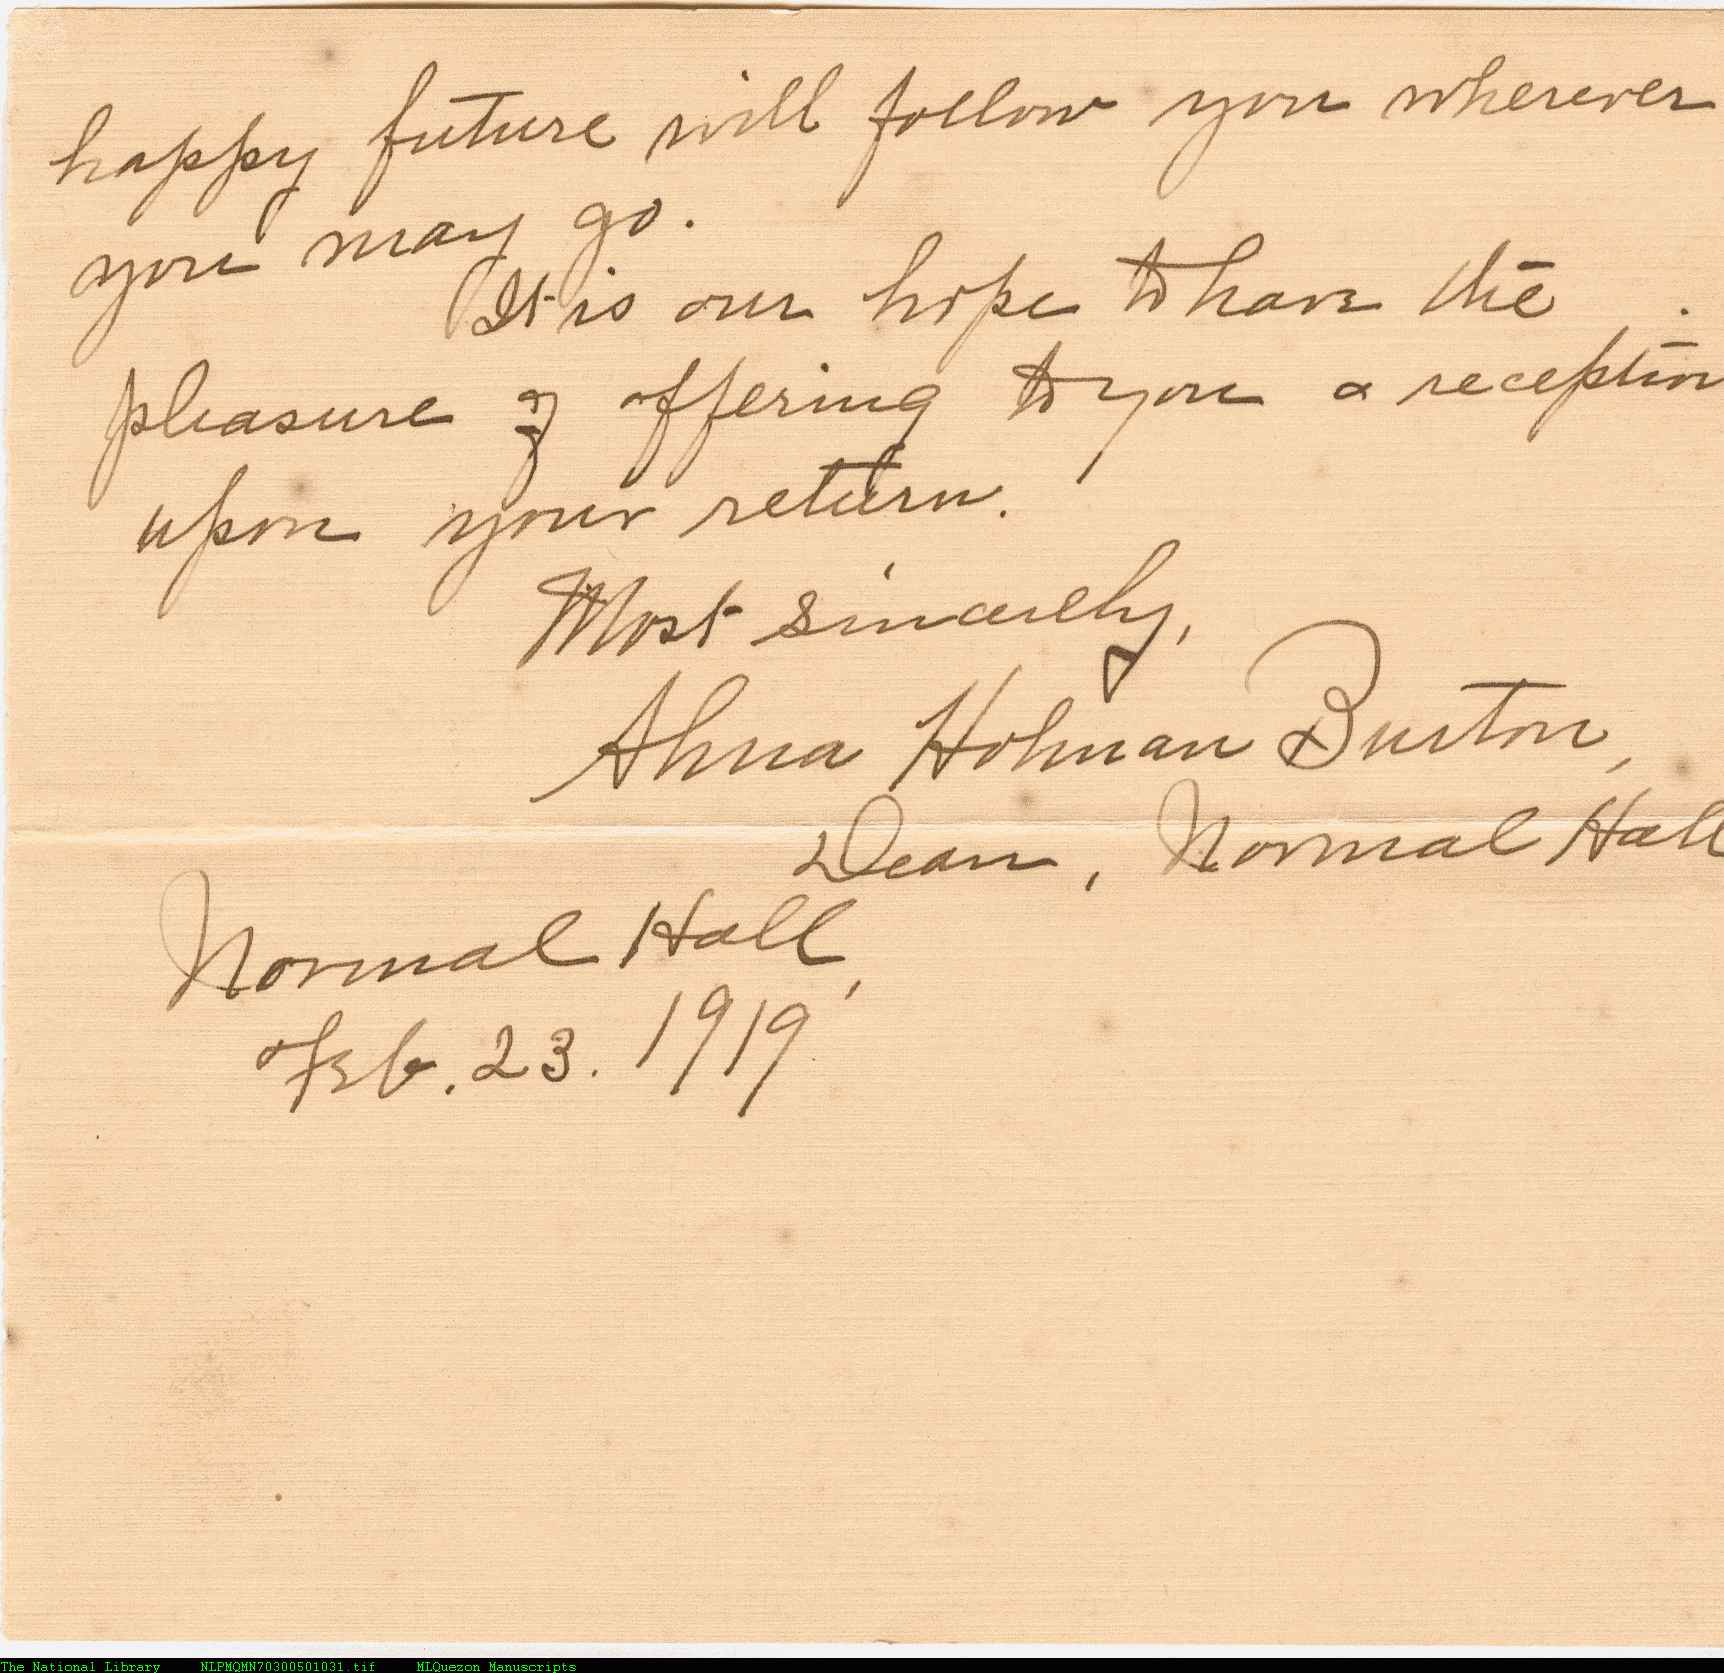 happy future will follow you wherever
you may go.
It is our hope to have the
pleasure of offering to you a reception
upon your return.
Most sincerely,
Alma Holman Burton,
Dean, Normal Hall
Normal Hall,
Feb. 23. 1919
The National Library NLPMQMN70300501031.tif MLQuezon Manuscripts